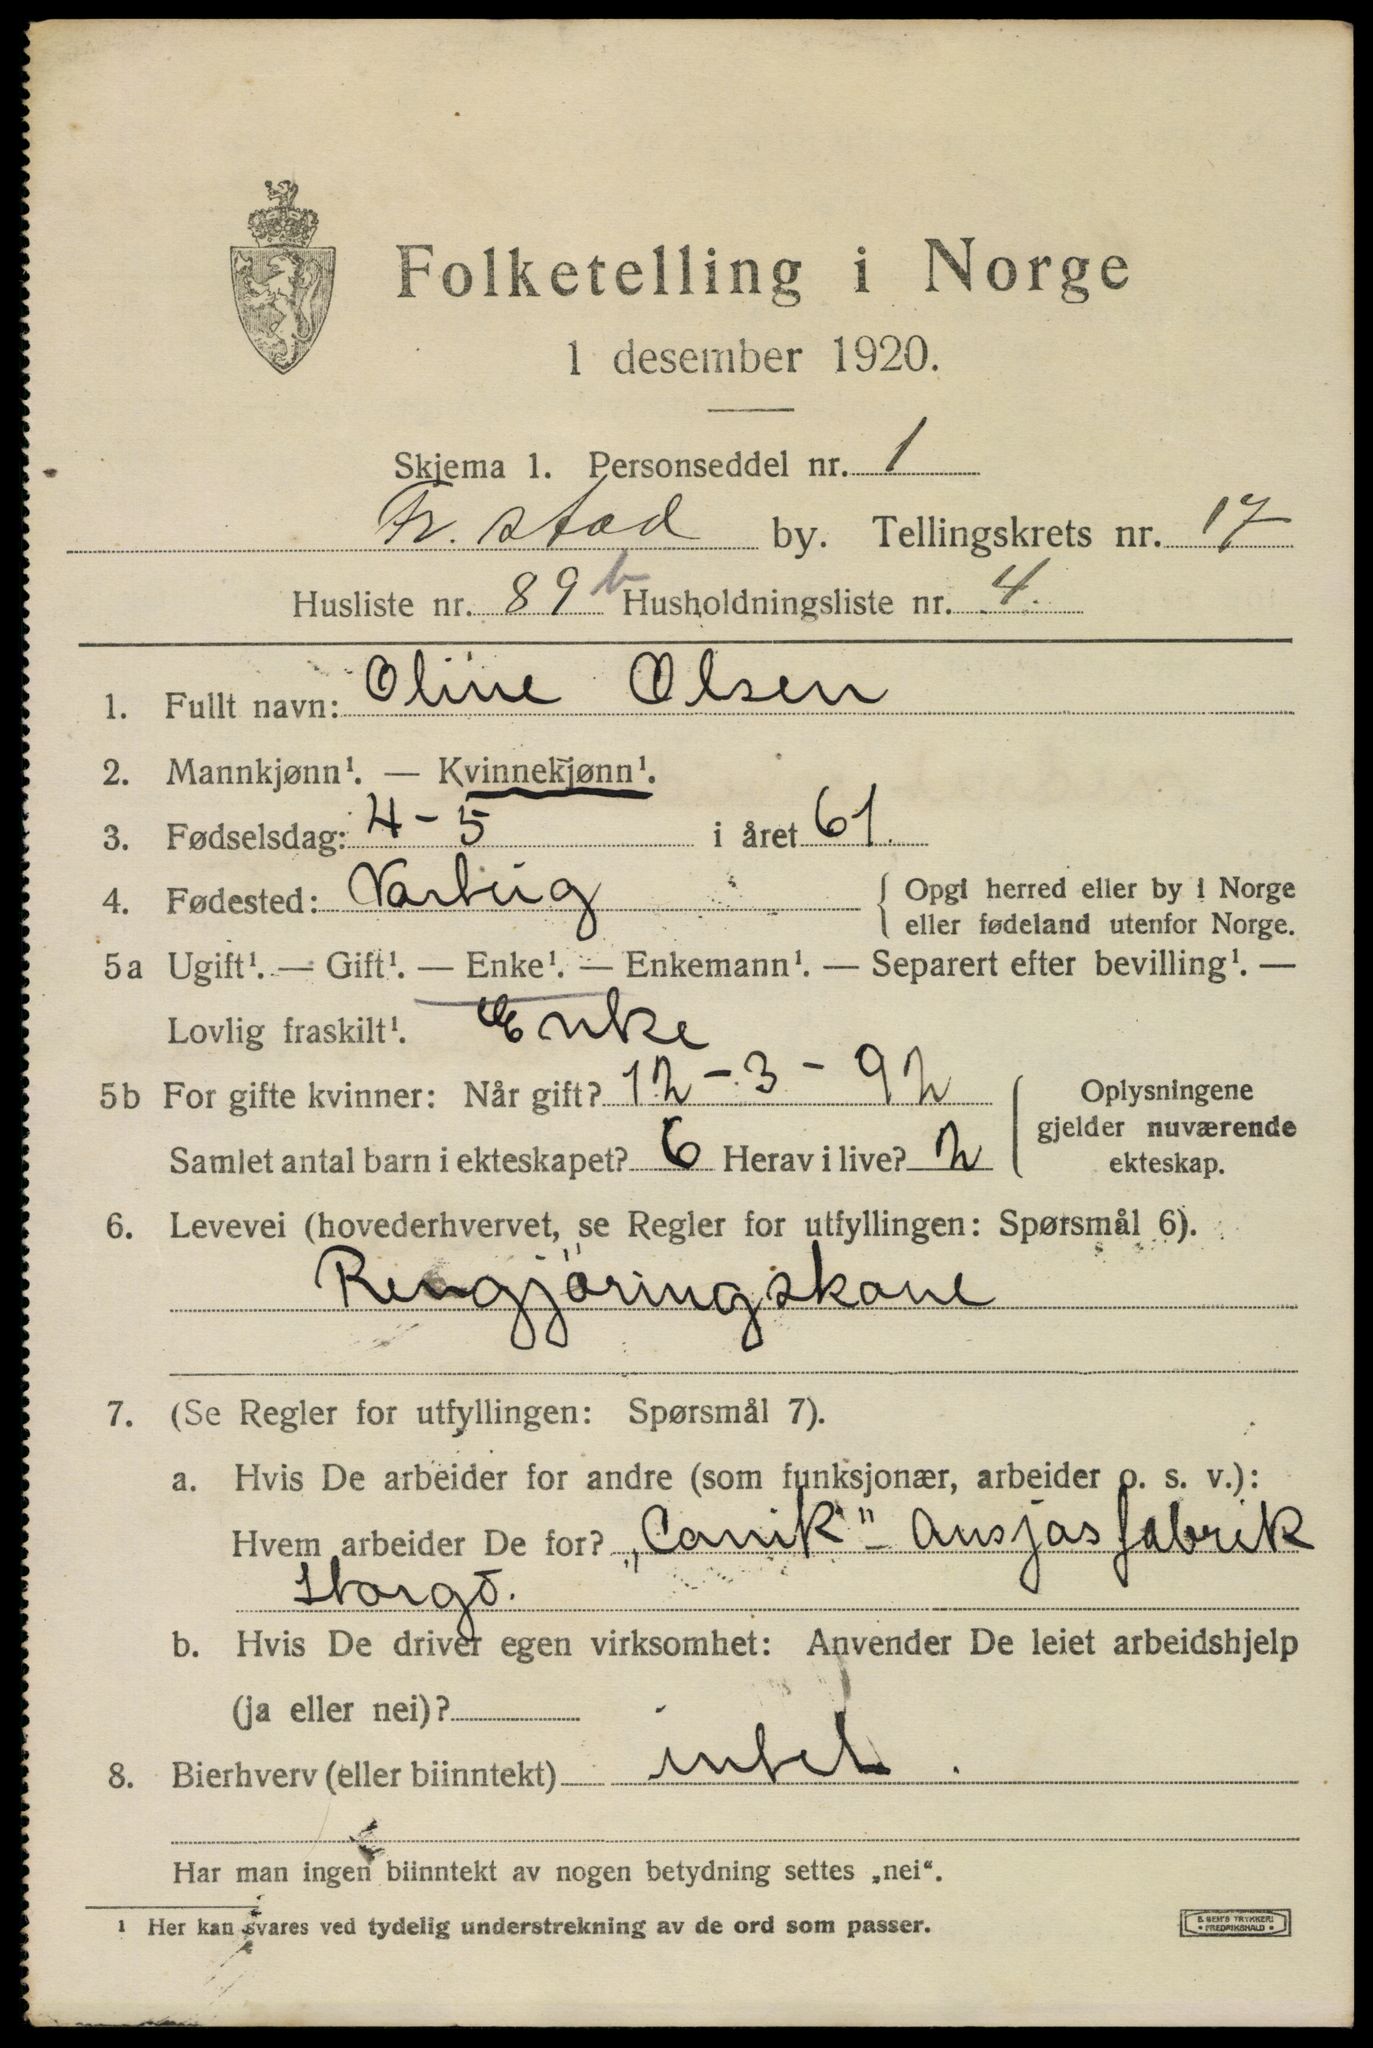 Folketelling i Norge
1 desember 1920.
Skjema 1. Personseddel nr. 1
Fr.stad by. Tellingskrets nr. 17
Husliste nr. 89 b Husholdningsliste nr. 4.
1. Fullt navn: Oline Olsen
2. Mannkjønn¹. — Kvinnekjønn¹.
3. Fødselsdag: 4-5 i året 61.
4. Fødested: Varteig { Opgi herred eller by i Norge
eller fødeland utenfor Norge.
5a Ugift¹. — Gift¹. — Enke¹. — Enkemann¹. — Separert efter bevilling¹. —
Lovlig fraskilt¹. Enke
5b For gifte kvinner: Når gift? 12-3-92
Samlet antal barn i ekteskapet? 6 Herav i live? 2
( Oplysningene
gjelder nuværende
ekteskap.
6. Levevei (hovederhvervet, se Regler for utfyllingen: Spørsmål 6).
Rengjöringskone
7. (Se Regler for utfyllingen: Spørsmål 7).
a. Hvis De arbeider for andre (som funksjonær, arbeider o. s. v.):
Hvem arbeider De for? „Canik" Ansjosfabrik
b. Hvis De driver egen virksomhet: Anvender De leiet arbeidshjelp
(ja eller nei)?
8. Bierhverv (eller biinntekt) intet.
Har man ingen biinntekt av nogen betydning settes „nei“.
¹ Her kan svares ved tydelig understrekning av de ord som passer.
E. SEM'S TRYKKERI
• FREDRIKSHALD •